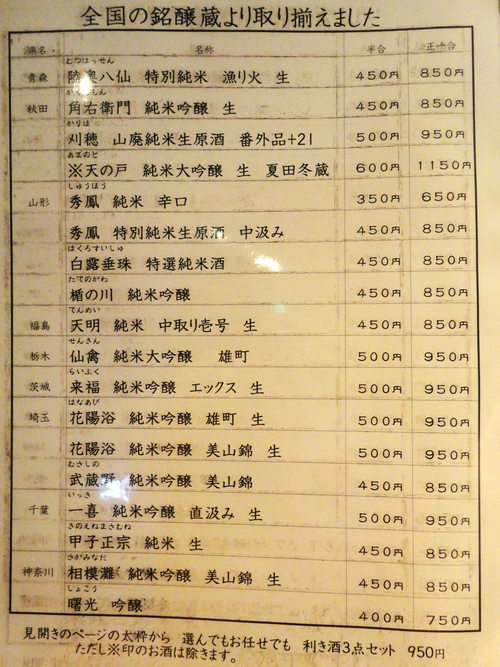 全国の銘醸蔵より取り揃えました
県名 名称 半合 正一合
むつはっせん
青森 陸奥八仙 特別純米 漁り火 生 450円 850円
秋田 角右衛門 純米吟醸 生 450円 850円
かりほ
刈穂 山廃純米生原酒 番外品+21 500円 950円
あまのと
※天の戸 純米大吟醸 生 夏田冬蔵 600円 1150円
しゅうほう
山形 秀鳳 純米 辛口 350円 650円
秀鳳 特別純米生原酒 中汲み 450円 850円
はくろすいしゅ
白露垂珠 特選純米酒 450円 850円
たてのがわ
楯の川 純米吟醸 450円 850円
てんめい
福島 天明 純米 中取り壱号 生 450円 850円
せんきん
栃木 仙禽 純米大吟醸 雄町 500円 950円
らいふく
茨城 来福 純米吟醸 エックス 生 500円 950円
はなあび
埼玉 花陽浴 純米吟醸 雄町 生 500円 950円
花陽浴 純米吟醸 美山錦 生 500円 950円
むさしの
武蔵野 純米吟醸 美山錦 450円 850円
いっき
千葉 一喜 純米吟醸 直汲み 生 500円 950円
きのえねまさむね
甲子正宗 純米 生 450円 850円
さがみなだ
神奈川 相模灘 純米吟醸 美山錦 生 450円 850円
しょこう
曙光 吟醸 400円 750円
見開きのページの太枠から 選んでもお任せでも 利き酒3点セット 950円
ただし※印のお酒は除きます。